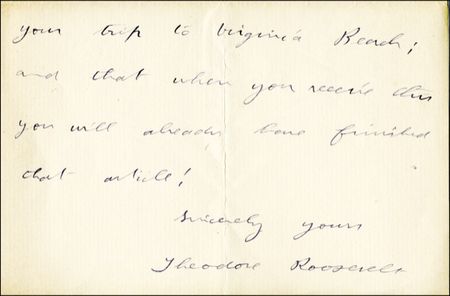 your trip to Virginia Beach;
and that when you receive this
you will already have finished
that article!
Sincerely yours
Theodore Roosevelt